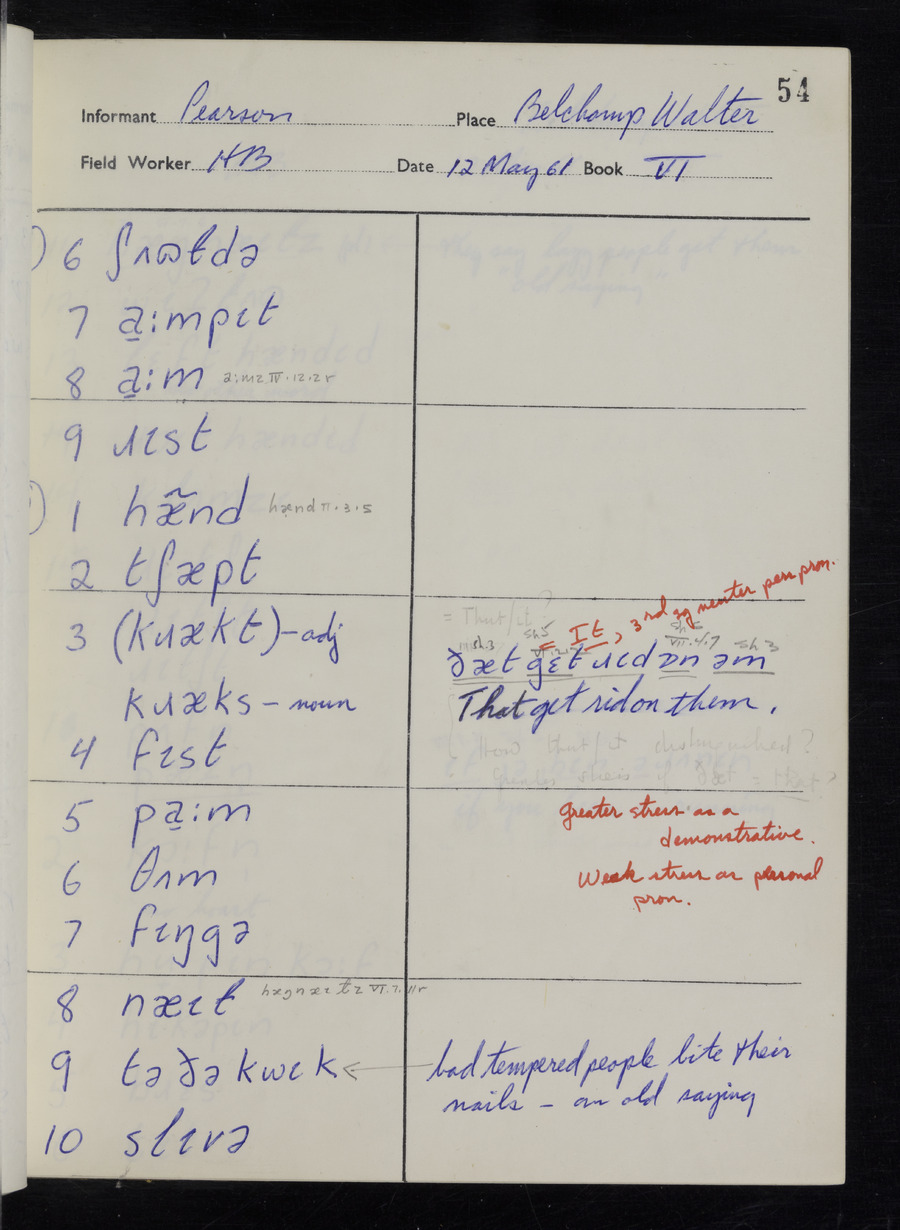 54
Informant Pearson Place Belchamp Walter
Field Worker HB Date 12 May 61 Book VI
6 ʃʌɷtdə
7 a̠:mpɩt
8 a̠:m a:mz IV.12.2r
9 ɹɩst
1 hæ̃nd hænd II.3.5
2 tʃæpt
3 (kɹækt) – adj
kɹæks – noun
4 fɩst
= That/it?
= It, 3rd sg neuter pers pron.
ðæt gɛt ɹɩd ɒn əm
That get rid on them.
How that/it distinguished?
Greater stress if ðæt = that?
5 pa̠:m
greater stress as a
demonstrative.
6 θʌm
Weak stress as personal
pron.
7 fɩŋgə
8 næɩt hægnæɩtz VI.7.11r
9 tə ðə kwɩk ← bad tempered people bite their
nails – an old saying
10 slɩvə